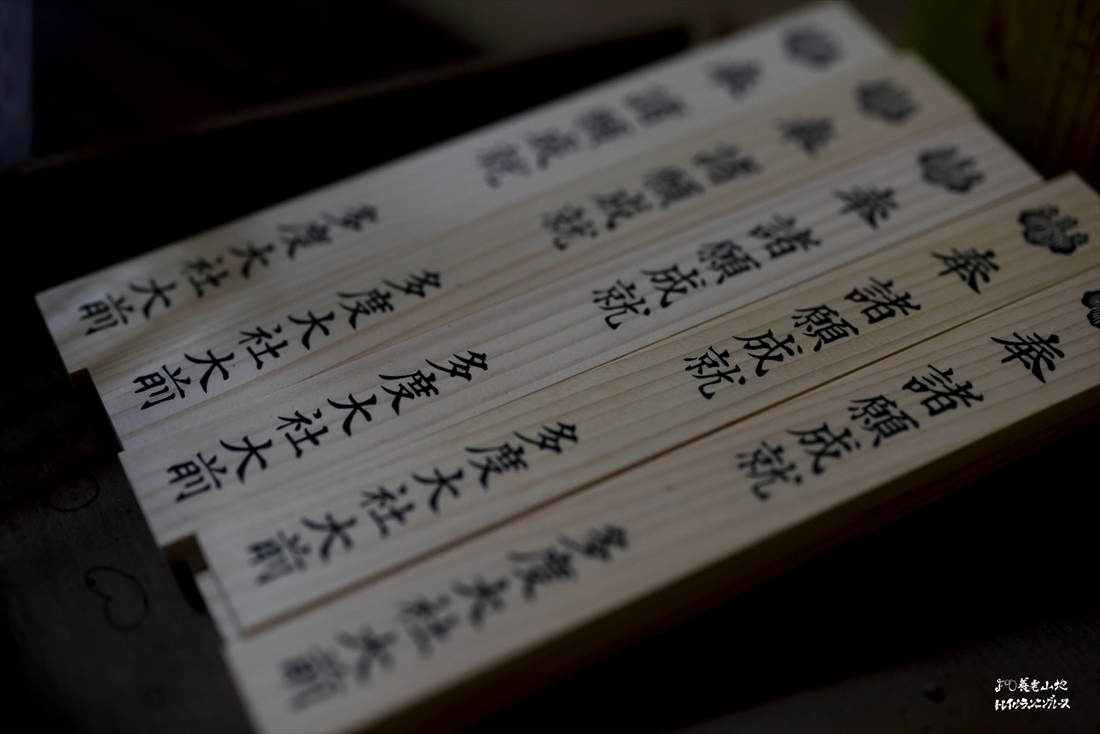 奉 諸願成就 多度大社大前
奉 諸願成就 多度大社大前
奉 諸願成就 多度大社大前
奉 諸願成就 多度大社大前
奉 諸願成就 多度大社大前
養老山地
トレイルランニングレース